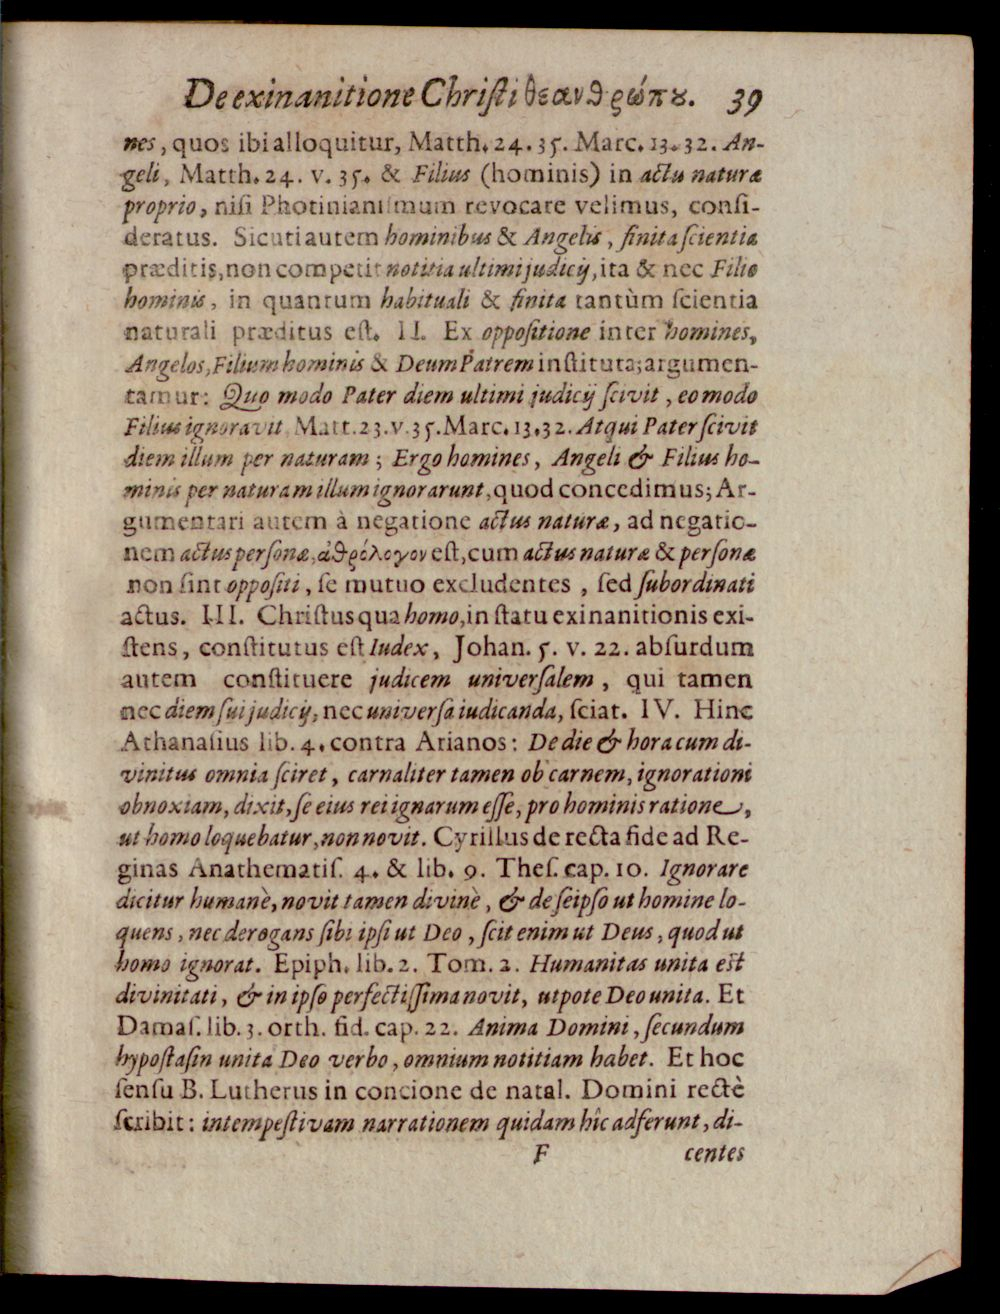 De exinanitione Christi θεανθρώπȣ. 39
nes, quos ibi alloquitur, Matth. 24. 35. Marc. 13. 32. An-
geli, Matth. 24. v. 35. & Filius (hominis) in actu naturæ
proprio, nisi Photinianismum revocare velimus, consi-
deratus. Sicuti autem hominibus & Angelis, finita scientia
præditis, non competit notitia ultimi judicij, ita & nec Filio
hominis, in quantum habituali & finita tantùm scientia
naturali præditus est. II. Ex oppositione inter homines,
Angelos, Filium hominis & Deum Patrem instituta; argumen-
tamur: Quo modo Pater diem ultimi judicij scivit, eo modo
Filius ignoravit Matt. 23. v. 35. Marc. 13. 32. Atqui Pater scivit
diem illum per naturam; Ergo homines, Angeli & Filius ho-
minis per naturam illum ignorarunt, quod concedimus; Ar-
gumentari autem à negatione actus naturæ, ad negatio-
nem actus personæ, ἀθρόλογον est, cum actus naturæ & personæ
non sint oppositi, se mutuo excludentes, sed subordinati
actus. III. Christus qua homo, in statu exinanitionis exi-
stens, constitutus est Iudex, Johan. 5. v. 22. absurdum
autem constituere judicem universalem, qui tamen
nec diem sui judicij, nec universa iudicanda, sciat. IV. Hinc
Athanasius lib. 4. contra Arianos: De die & hora cum di-
vinitus omnia sciret, carnaliter tamen ob carnem, ignorationi
obnoxiam, dixit, se eius rei ignarum esse, pro hominis ratione,
ut homo loquebatur, non novit. Cyrillus de recta fide ad Re-
ginas Anathematis. 4. & lib. 9. Thes. cap. 10. Ignorare
dicitur humanè, novit tamen divinè, & de seipso ut homine lo-
quens, nec derogans sibi ipsi ut Deo, scit enim ut Deus, quod ut
homo ignorat. Epiph. lib. 2. Tom. 2. Humanitas unita est
divinitati, & in ipso perfectissima novit, utpote Deo unita. Et
Damas. lib. 3. orth. fid. cap. 22. Anima Domini, secundum
hypostasin unita Deo verbo, omnium notitiam habet. Et hoc
sensu B. Lutherus in concione de natal. Domini rectè
scribit: intempestivam narrationem quidam hîc adferunt, di-
F centes